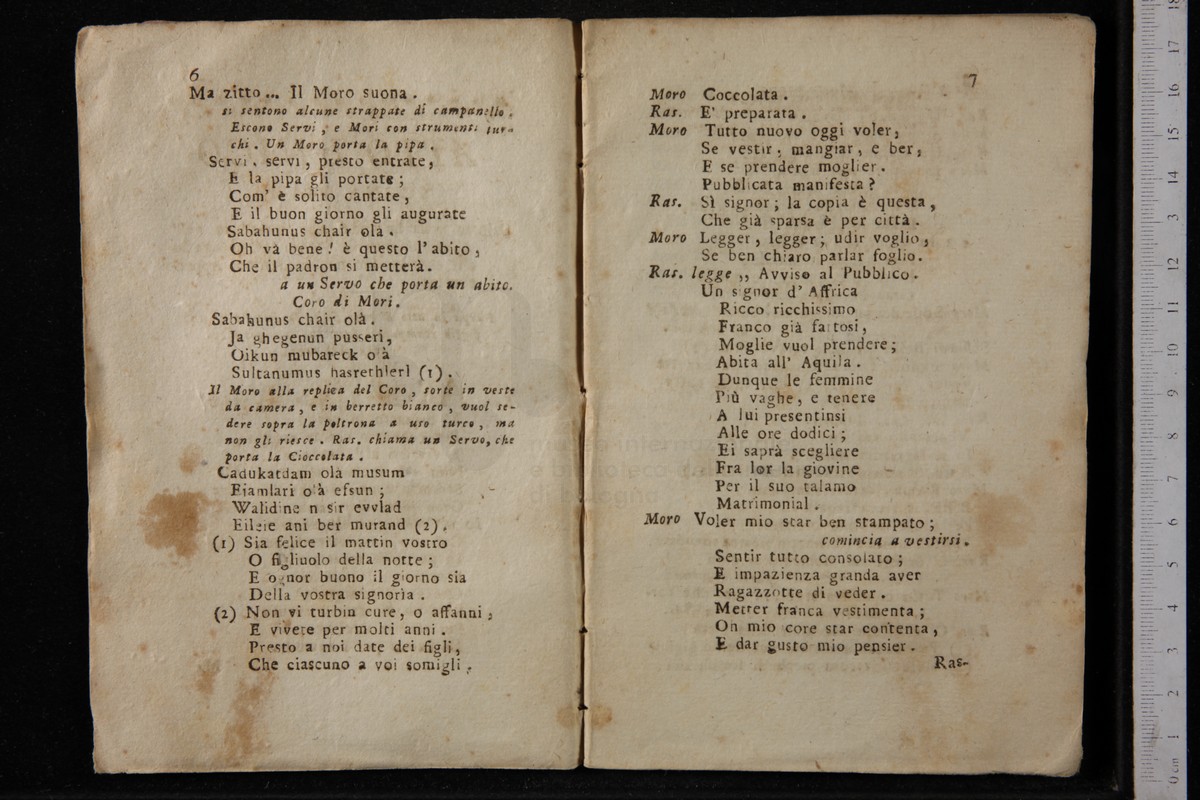 6
Ma zitto ... Il Moro suona .
si sentono alcune strappate di campanello .
Escono Servi , e Mori con strumenti tur-
chi . Un Moro porta la pipa .
Servi , servi , presto entrate ,
E la pipa gli portate ;
Com' è solito cantate ,
E il buon giorno gli augurate
Sabahunus chair olà .
Oh và bene ! è questo l' abito ,
Che il padron si metterà .
a un Servo che porta un abito.
Coro di Mori.
Sabahunus chair olà .
Ja ghegenun pusseri,
Oikun mubareck o à
Sultanumus hasrethleri (1) .
Il Moro alla replica del Coro , sorte in veste
da camera , e in berretto bianco , vuol se-
dere sopra la poltrona a uso turco , ma
non gli riesce . Ras. chiama un Servo, che
porta la Cioccolata .
Cadukatdam olà musum
Eiamlari o'à efsun ;
Walidine n sir evvlad
Eileie ani ber murand (2) .
(1) Sia felice il mattin vostro
O figliuolo della notte ;
E ognor buono il giorno sia
Della vostra signorìa .
(2) Non vi turbin cure , o affanni ,
E vivete per molti anni .
Presto a noi date dei figli ,
Che ciascuno a voi somigli .
7
Moro Coccolata .
Ras. E' preparata .
Moro Tutto nuovo oggi voler ,
Se vestir , mangiar , e ber ,
E se prendere moglier .
Pubblicata manifesta ?
Ras. Sì signor ; la copia è questa ,
Che già sparsa è per città .
Moro Legger , legger ; udir voglio ,
Se ben chiaro parlar foglio .
Ras. legge ,, Avviso al Pubblico .
Un signor d' Affrica
Ricco ricchissimo
Franco già fattosi ,
Moglie vuol prendere ;
Abita all' Aquila .
Dunque le femmine
Più vaghe , e tenere
A lui presentinsi
Alle ore dodici ;
Ei saprà scegliere
Fra lor la giovine
Per il suo talamo
Matrimonial .
Moro Voler mio star ben stampato ;
comincia a vestirsi .
Sentir tutto consolato ;
E impazienza granda aver
Ragazzotte di veder .
Metter franca vestimenta ;
On mio core star contenta ,
E dar gusto mio pensier .
Ras-